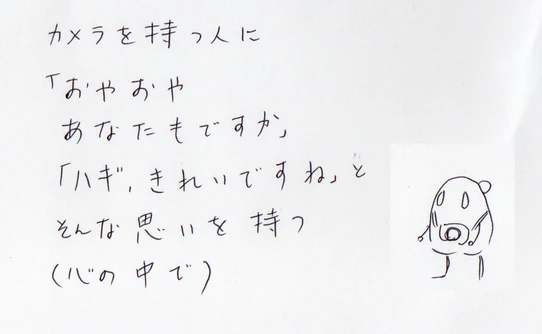 カメラを持つ人に
「おやおや
あなたもですか」
「ハギ,きれいですね」と
そんな思いを持つ
(心の中で)